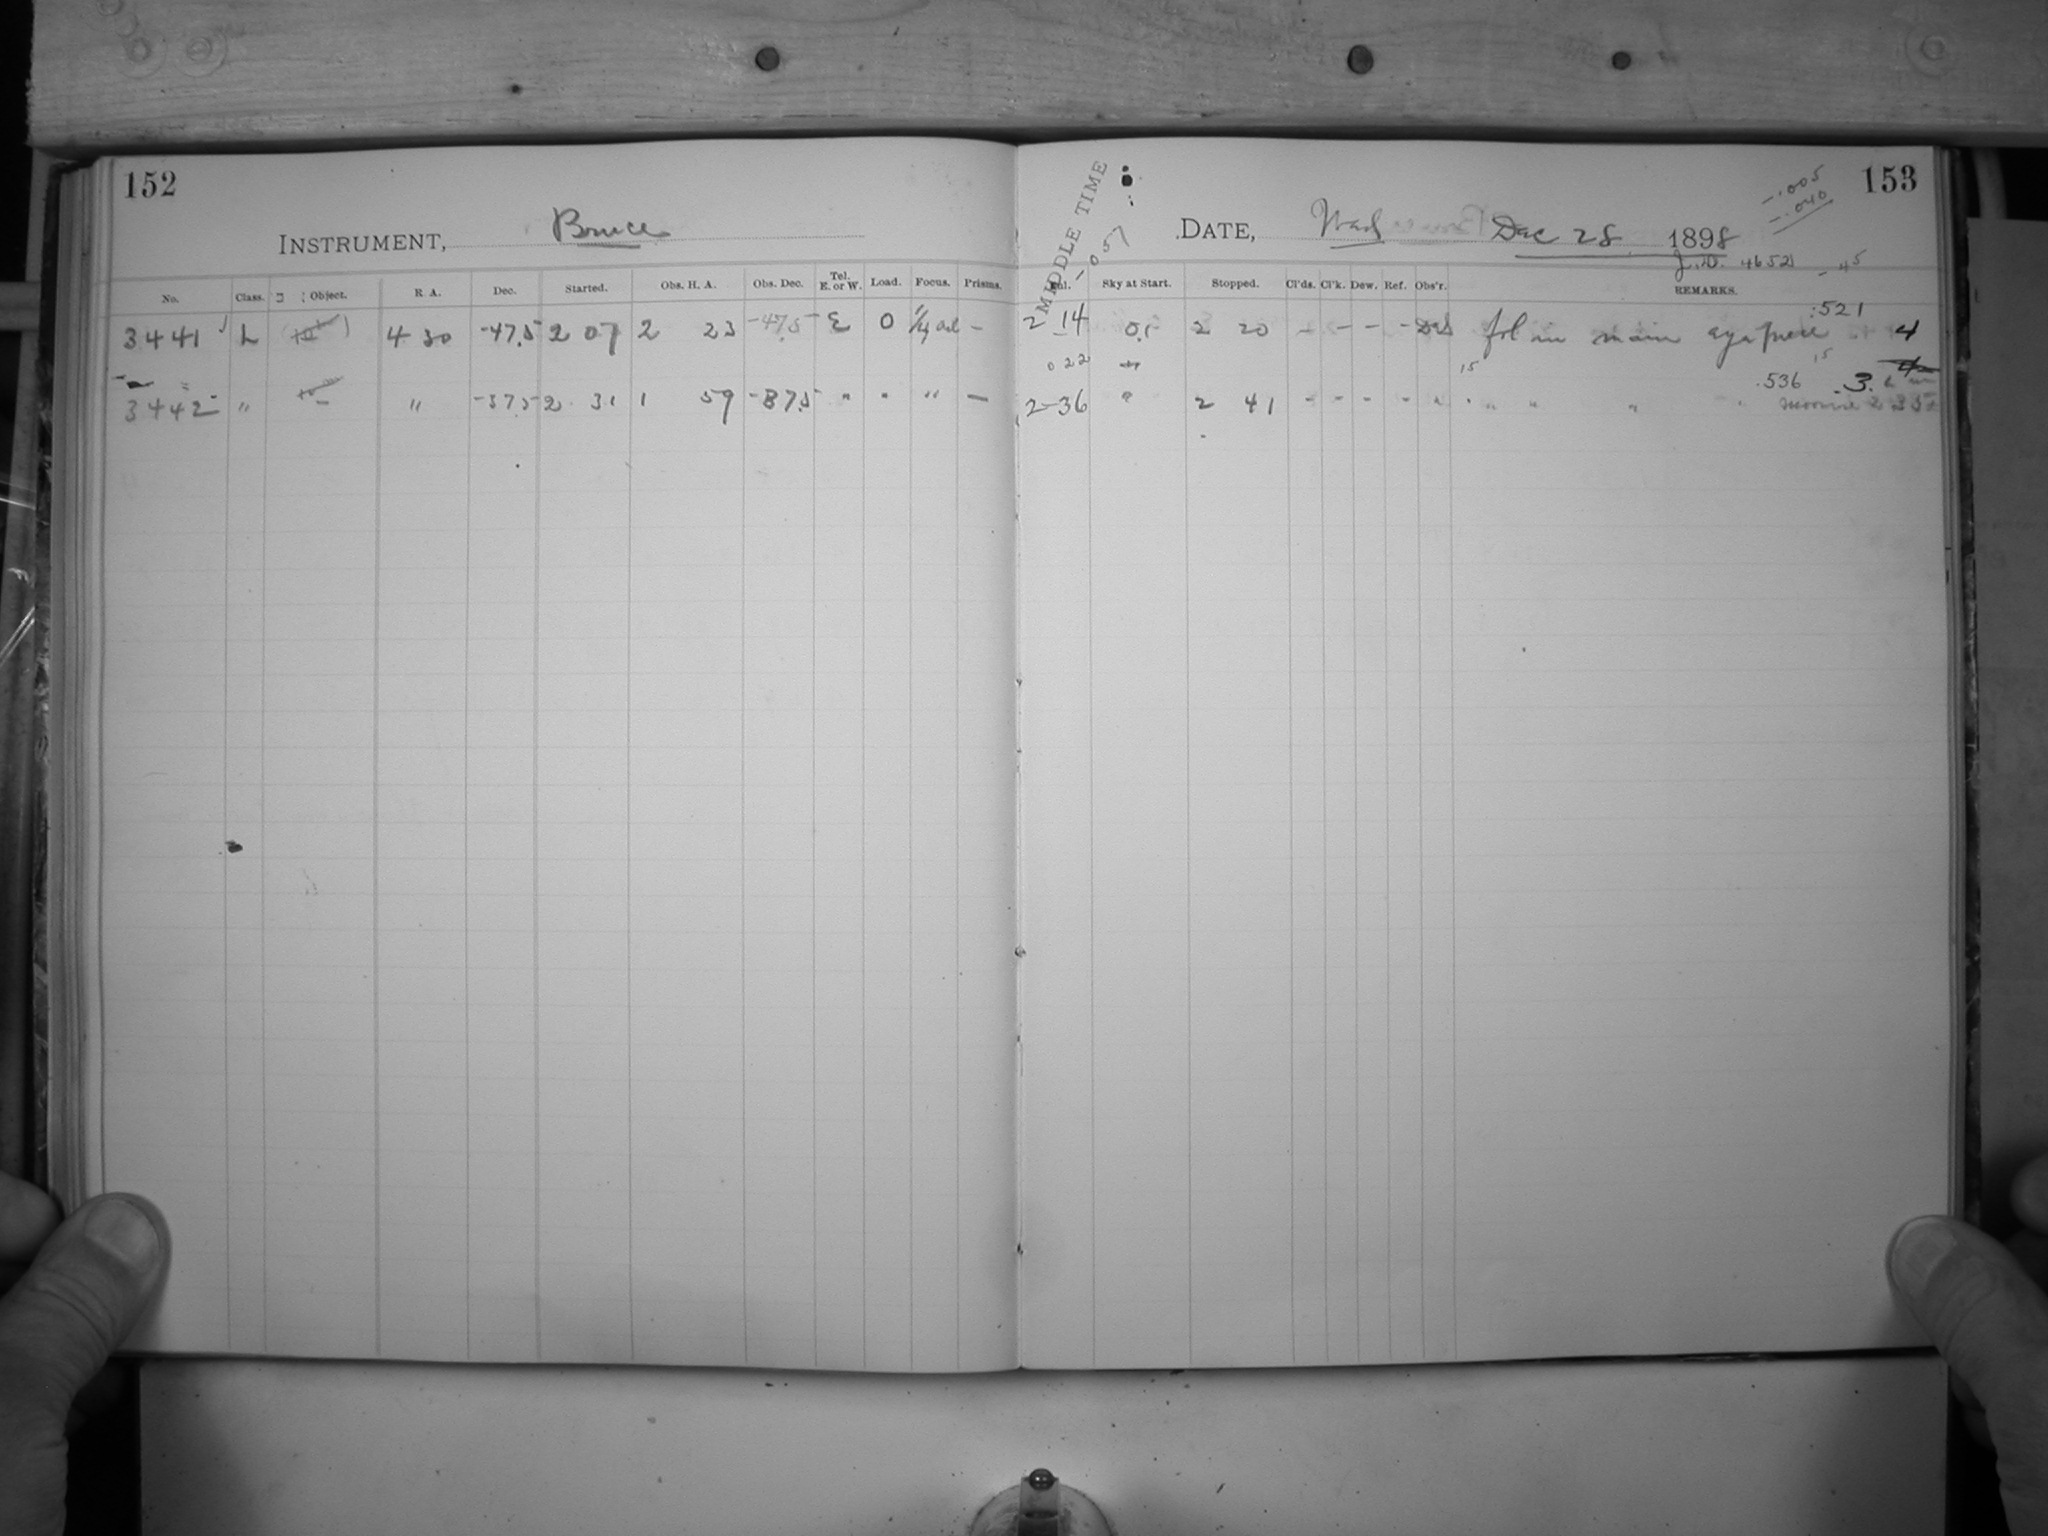 152
INSTRUMENT, Bruce
No. Class. Object. R. A. Dec. Started. Obs. H. A. Obs. Dec. Tel. E. or W. Load. Focus. Prisms.
3441 L 4 30 -47.5 2 07 2 23 -47.5 E 0 -
3442 " " -37.5 2 31 1 59 -37.5 " " " -
MIDDLE TIME
153
-.005
-.040
DATE, Wed Dec 28 1898
-.057
J.D. 4652 -45
Sky at Start. Stopped. Cl'ds. Cl'k. Dew. Ref. Obs'r. REMARKS.
.521
2-14 0.1 2 20 - - - - fol in main eye piece 4
022
15 15
.536 3.
2-36 " 2 41 - - - - " " " " " moonrise